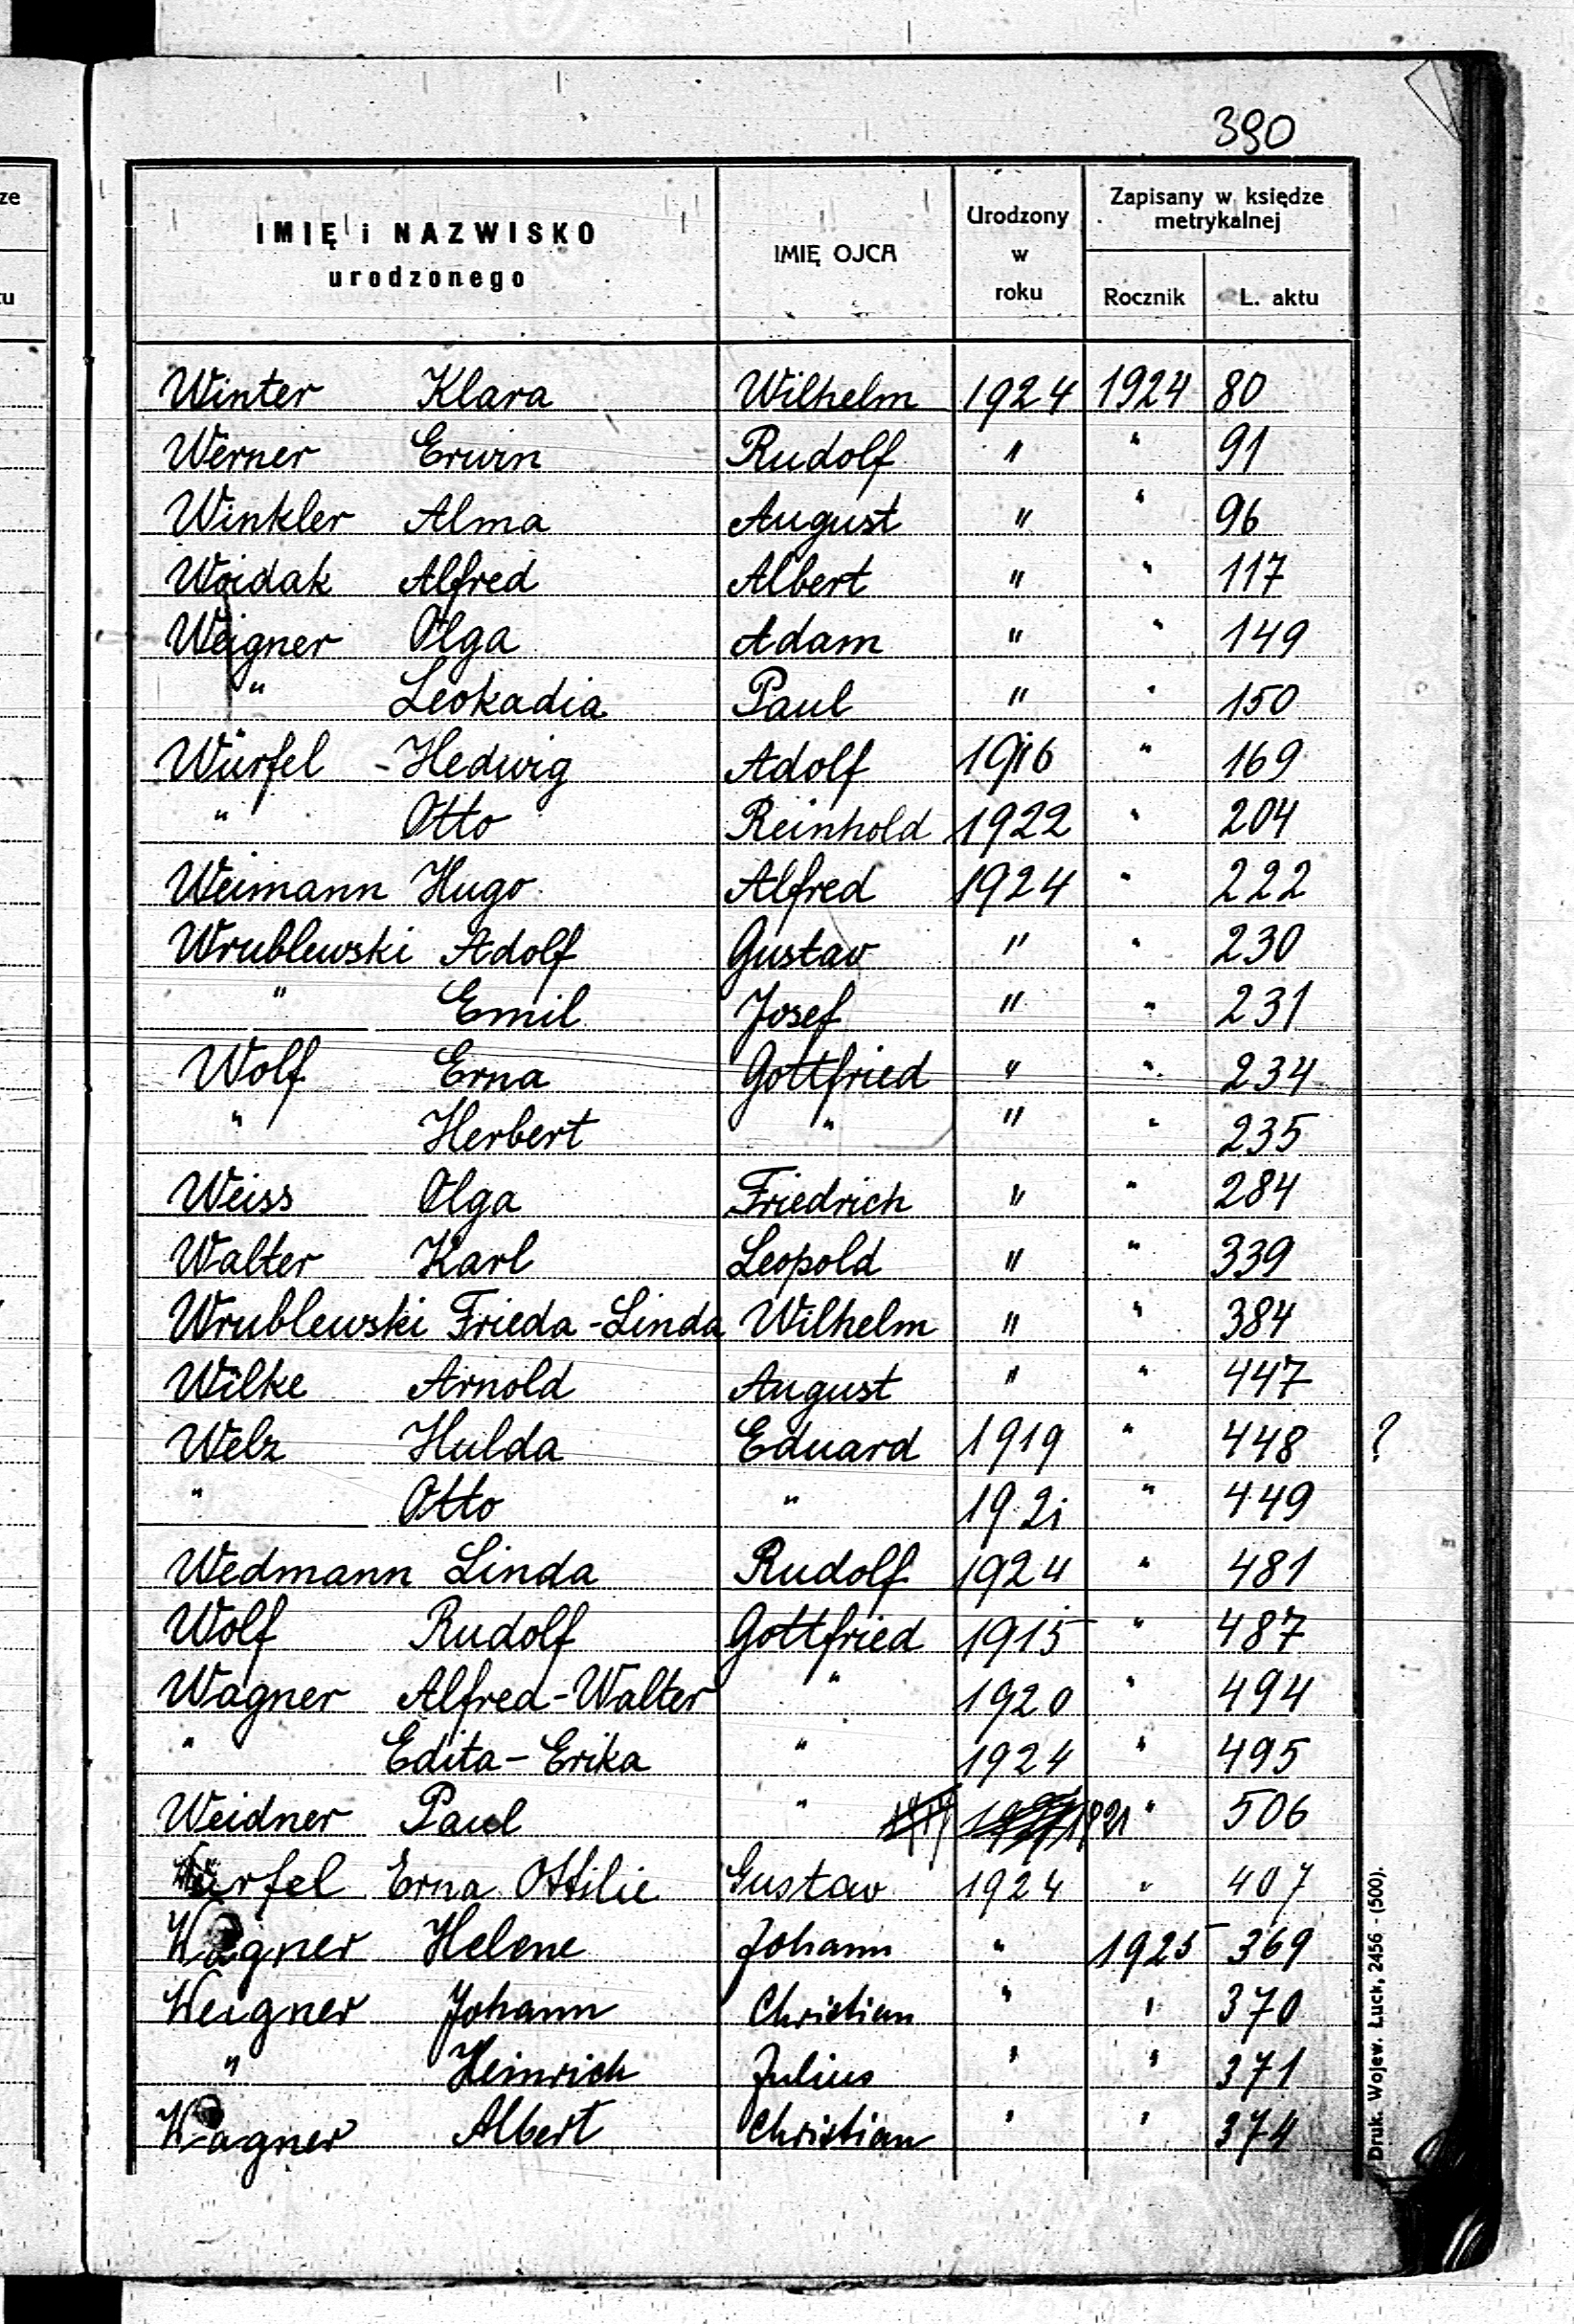 390
IMIĘ i NAZWISKO urodzonego IMIĘ OJCA Urodzony w roku Zapisany w księdze metrykalnej
Rocznik L. aktu
Winter Klara Wilhelm 1924 1924 80
Werner Erwin Rudolf " " 91
Winkler Alma August " " 96
Woidak Alfred Albert " " 117
Weigner Olga Adam " " 149
" Leokadia Paul " " 150
Würfel - Hedwig Adolf 1916 " 169
" Otto Reinhold 1922 " 204
Weimann Hugo Alfred 1924 " 222
Wrublewski Adolf Gustav " " 230
" Emil Josef " " 231
Wolf Erna Gottfried " " 234
" Herbert " " " 235
Weiss Olga Friedrich " " 284
Walter Karl Leopold " " 339
Wrublewski Frieda-Linda Wilhelm " " 384
Wilke Arnold August " " 447
Welz Hulda Eduard 1919 " 448 ?
" Otto " 1921 " 449
Wedmann Linda Rudolf 1924 " 481
Wolf Rudolf Gottfried 1915 " 487
Wagner Alfred-Walter " 1920 " 494
" Edita-Erika " 1924 " 495
Weidner Paul " 1921 " 506
Würfel Erna Ottilie Gustav 1924 " 407
Wagner Helene Johann " 1925 369
Weigner Johann Christian " " 370
" Heinrich Julius " " 371
Wagner Albert Christian " " 374
Druk. Wojew. Łuck, 2456 - (500).
ze
tu